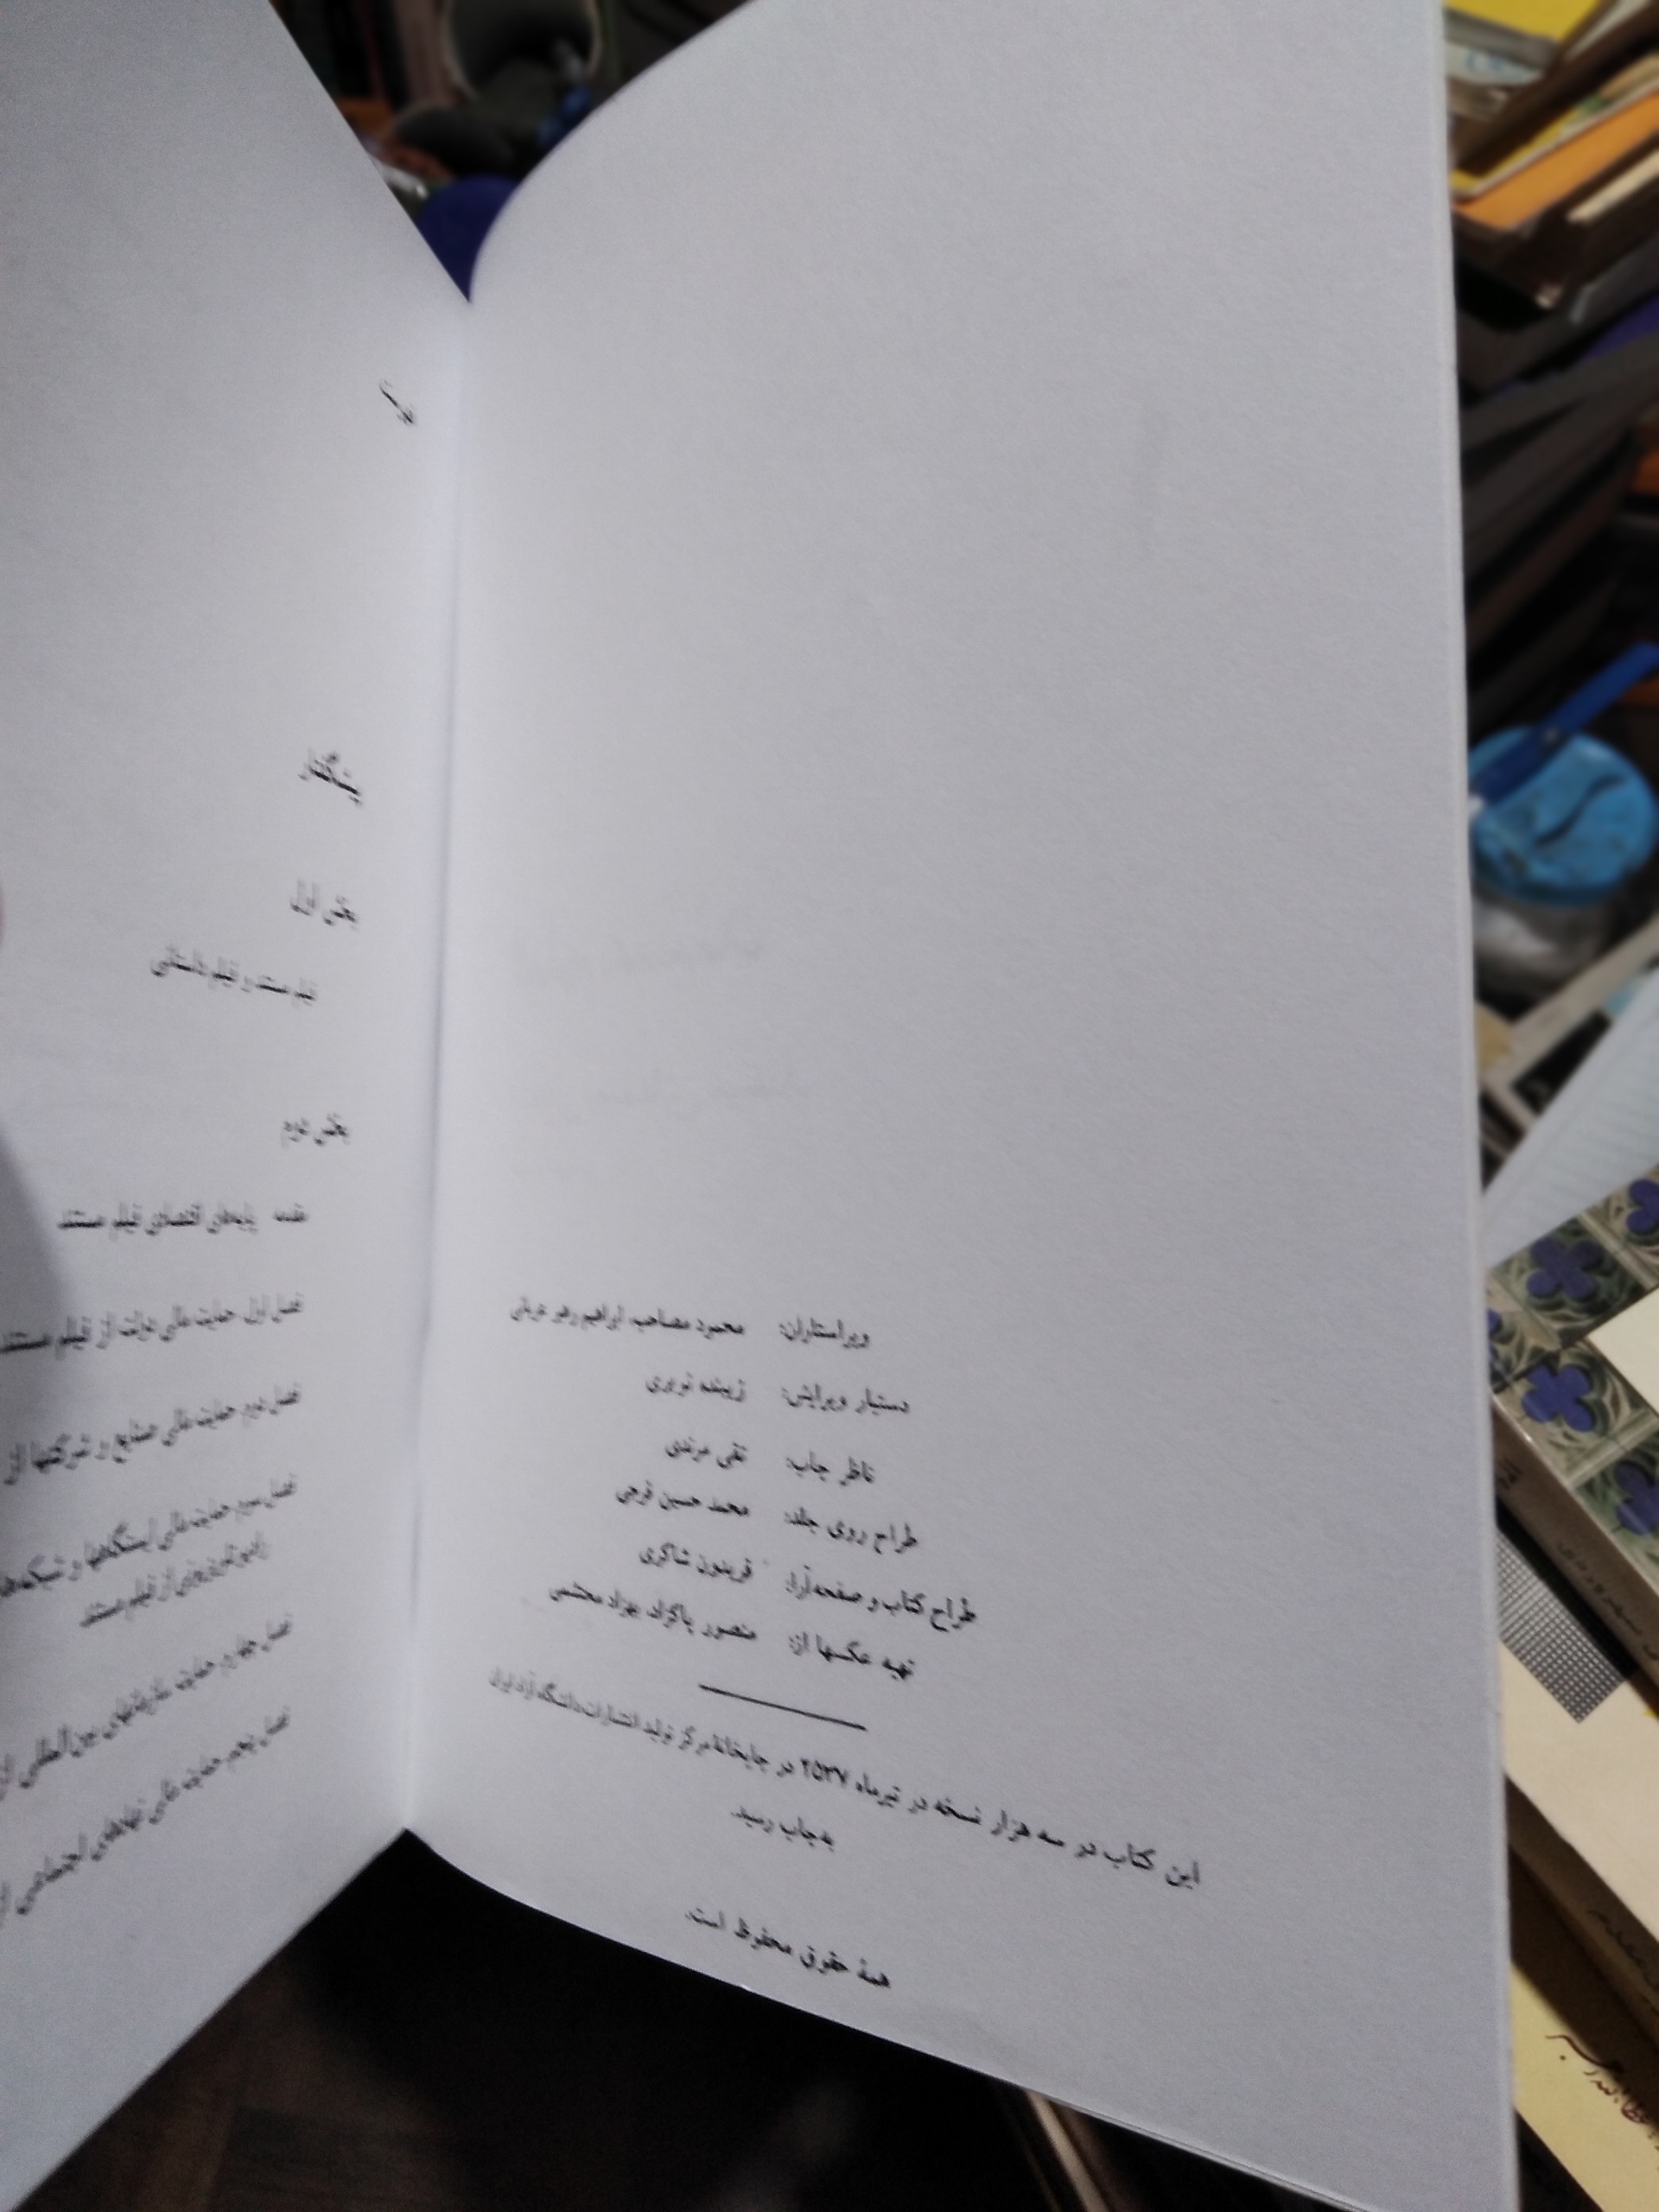 ویراستاران: محمود مصاحب، ابراهیم رهبر عربانی
دستیار ویرایش: زیبنده تبریزی
ناظر چاپ: تقی مرندی
طراح روی جلد: محمد حسین فرجی
طراح کتاب و صفحه‌آرا: فریدون شاکری
تهیه عکسها از: منصور پاکزاد، بهزاد محتشمی
این کتاب در سه هزار نسخه در تیرماه ۲۵۳۷ در چاپخانهٔ مرکز تولید انتشارات دانشگاه آزاد ایران
به‌چاپ رسید.
همهٔ حقوق محفوظ است.
فهرست
پیشگفتار
بخش اول
فیلم مستند و فیلم داستانی
بخش دوم
مقدمه پایه‌های اقتصادی فیلم مستند
فصل اول حمایت مالی دولت از فیلم مستند
فصل دوم حمایت مالی صنایع و شرکتها از
فصل سوم حمایت مالی ایستگاهها و شبکه‌های
رادیو تلویزیونی از فیلم مستند
فصل چهارم حمایت سازمانهای بین‌المللی از
فصل پنجم حمایت مالی نهادهای اجتماعی از